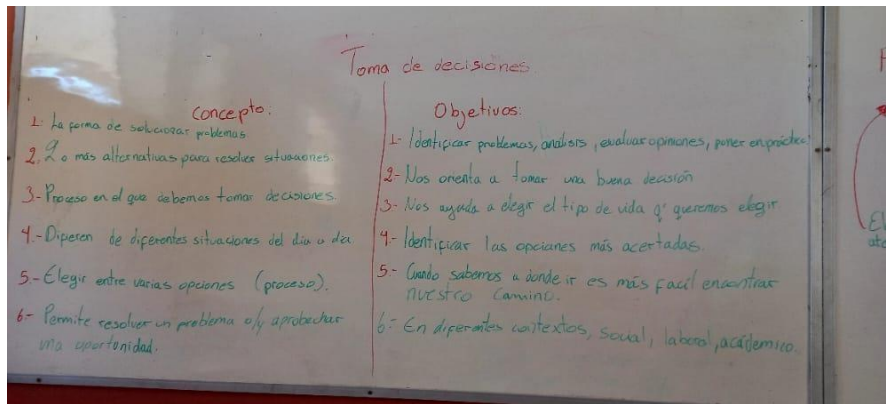 Toma de decisiones.
Concepto:
1- La forma de solucionar problemas
2. 2 o más alternativas para resolver situaciones.
3- Proceso en el que debemos tomar decisiones
4.- Difieren de diferentes situaciones del dia a dia
5.- Elegir entre varias opciones (proceso).
6- Permite resolver un problema o/y aprobechar
una oportunidad.
Objetivos:
1- Identificar problemas, analisis, evaluar opiniones, poner en práctica
2- Nos orienta a tomar una buena decisión
3- Nos ayuda a elegir el tipo de vida q' queremos elegir.
4- Identificar las opciones más acertadas.
5.- Cuando sabemos a donde ir es más facil encontrar
nuestro camino.
6- En diferentes contextos, social, laboral, académico.